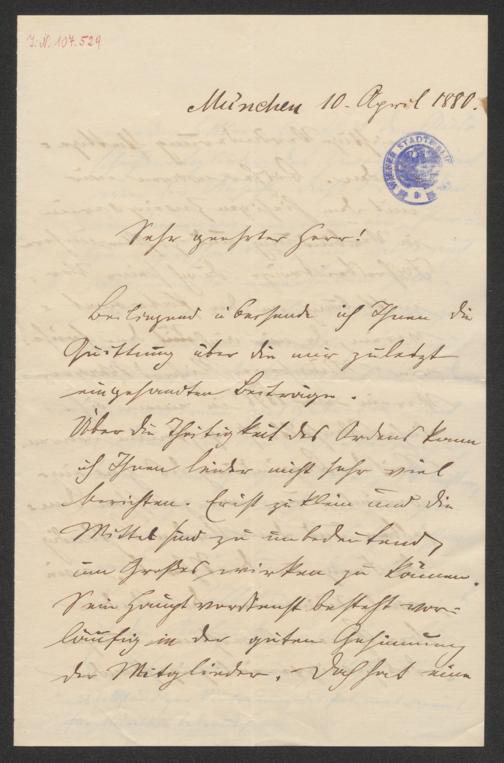 I.N. 107.529
München 10. April 1880.
WIENER STADTBIBL
Sehr geehrter Herr!
Beiliegend übersende ich Ihnen die
Quittung über die mir zuletzt
eingesandten Beiträge.
Über die Thätigkeit des Ordens kann
ich Ihnen leider nicht sehr viel
berichten. Er ist zu klein und die
Mittel sind zu unbedeutend,
um Großes wirken zu können.
Sein Hauptverdienst besteht vor-
läufig in der guten Gesinnung
der Mitglieder. Doch hat eine